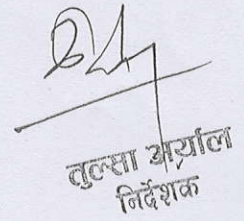 तुल्सा अर्याल
निर्देशक